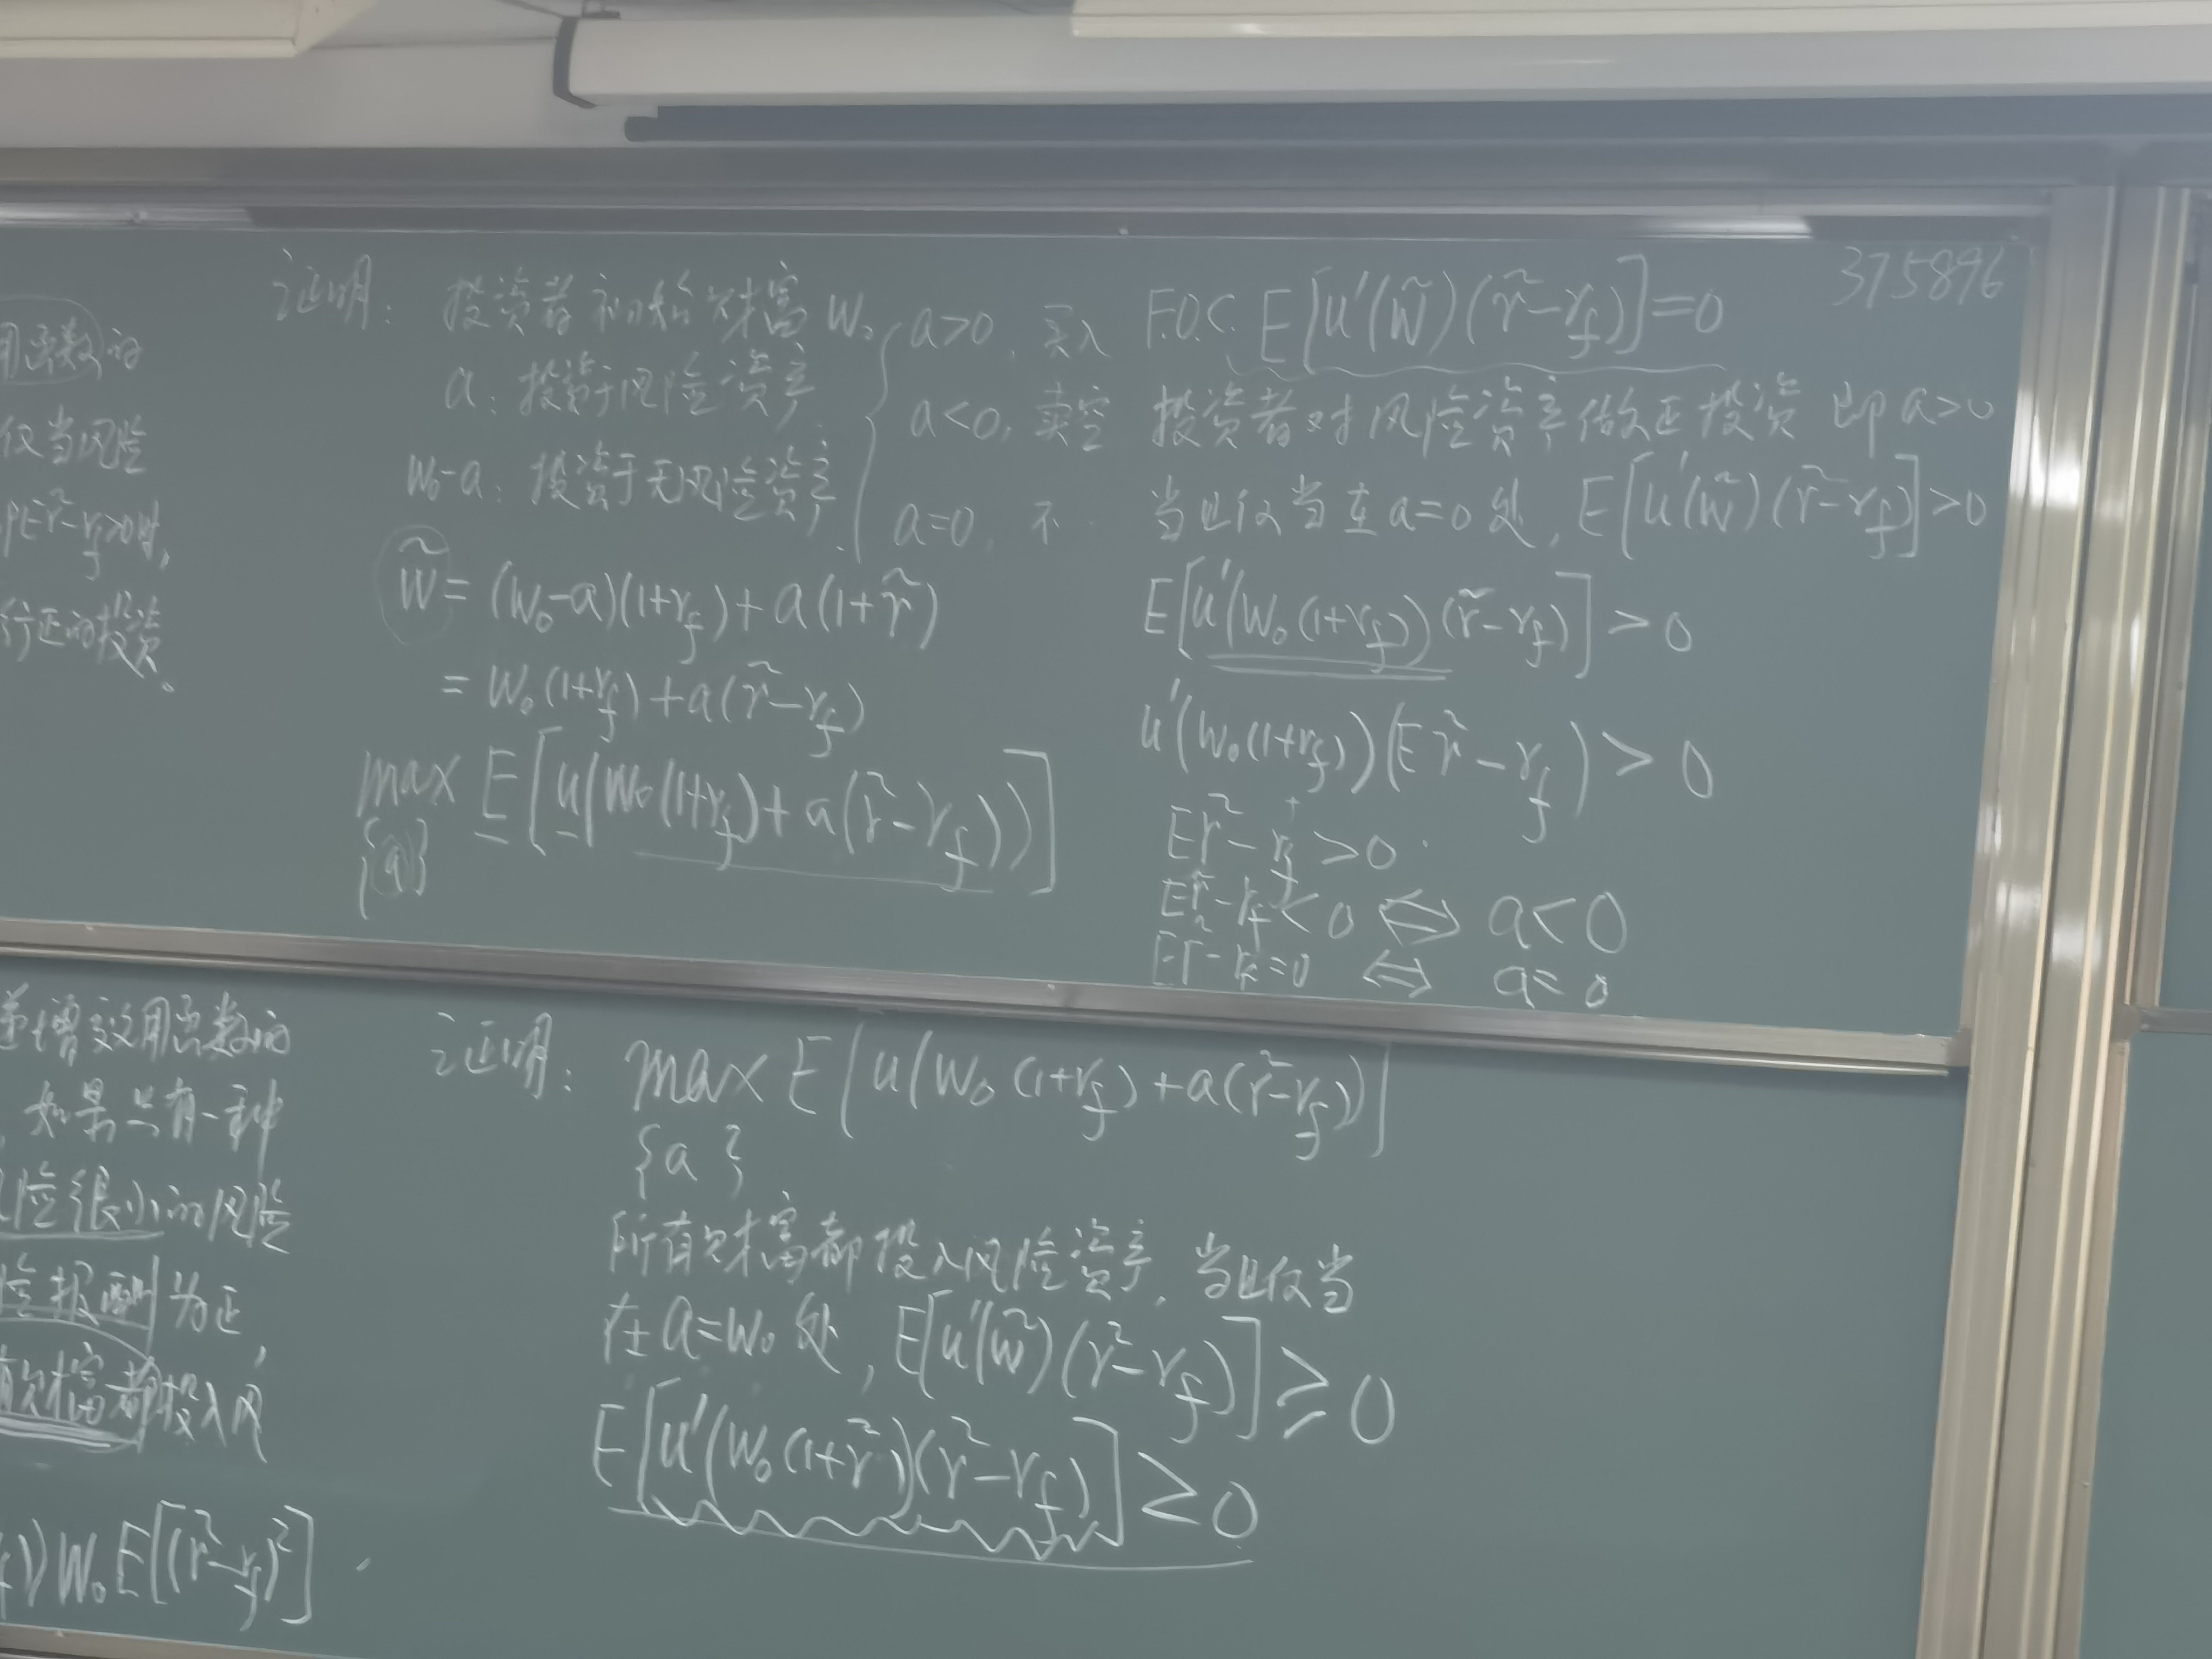 用函数的
仅当风险
即Er̃-r_f>0时,
行正的投资。
证明: 投资者初始财富W₀
a: 投资于风险资产
W₀-a: 投资于无风险资产
a>0, 买入
a<0, 卖空
a=0, 不
W̃ = (W₀-a)(1+r_f)+a(1+r̃)
= W₀(1+r_f)+a(r̃-r_f)
max E[u(W₀(1+r_f)+a(r̃-r_f))]
{a}
375896
F.O.C. E[u'(W̃)(r̃-r_f)]=0
投资者对风险资产做正投资 即a>0
当且仅当在a=0处, E[u'(W̃)(r̃-r_f)]>0
E[u'(W₀(1+r_f))(r̃-r_f)]>0
u'(W₀(1+r_f))(Er̃-r_f)>0
Er̃-r_f>0.
Er̃-r_f<0 ⇔ a<0
Er̃-r_f=0 ⇔ a=0
递增效用函数的
, 如果只有一种
风险很小的风险
险报酬为正,
有财富都投入风
)W₀E[(r̃-r_f)²].
证明: max E[u(W₀(1+r_f)+a(r̃-r_f))]
{a}
所有财富都投入风险资产, 当且仅当
在a=W₀处, E[u'(W̃)(r̃-r_f)]≥0
E[u'(W₀(1+r̃))(r̃-r_f)]≥0